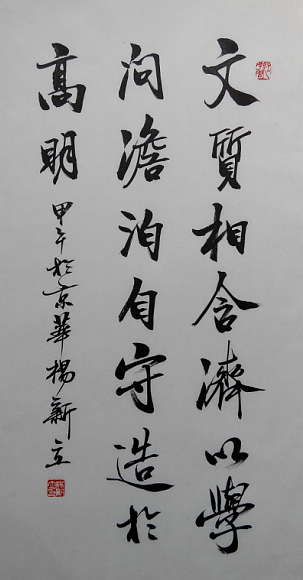 文質相含濟以學
問澹泊自守造於
高明
甲午於京華楊新立